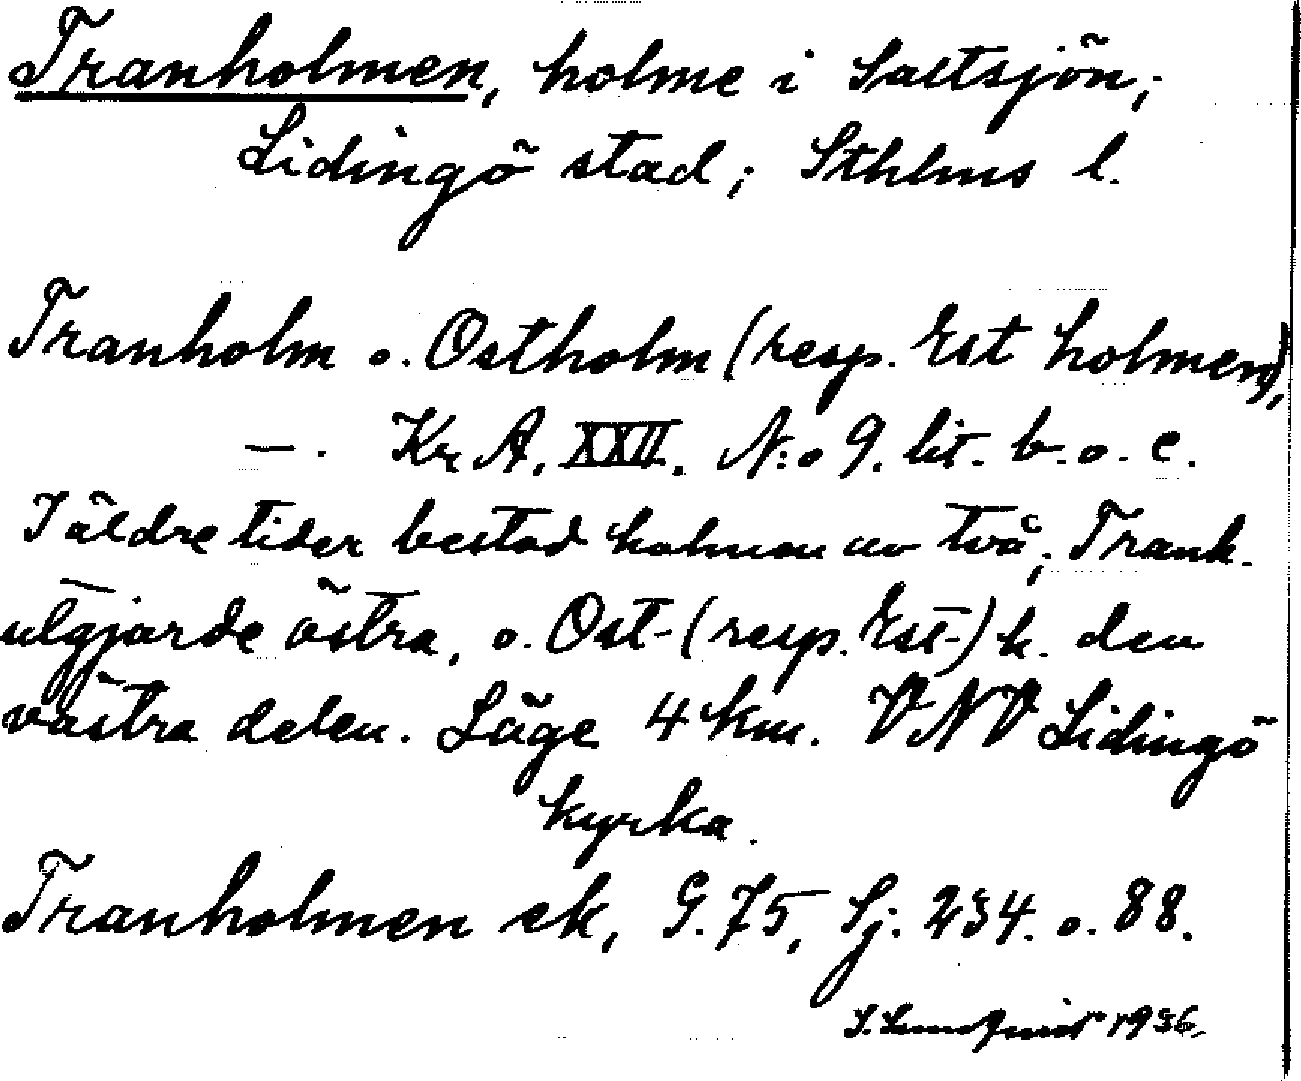 Tranholmen, holme i Saltsjön;
Lidingö stad; Sthlms l.
Tranholm o. Ostholm (resp. Est holmen),
— . Kr A. XXII. N:o 9. lit. b. o. c.
I äldre tider bestod holmen av två; Tranh.
utgjorde östra, o. Ost- (resp. Est-) h. den
västra delen. Läge 4 km. VNV Lidingö
kyrka.
Tranholmen ek, G. 75, Sj. 234. o. 88.
S. Lundqvist 1936.